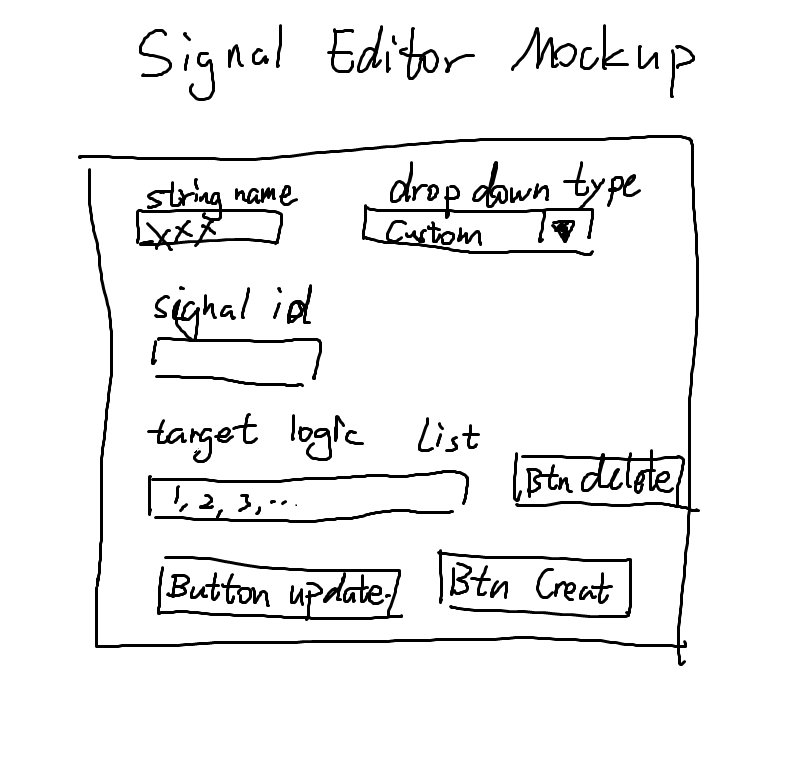 Signal Editor Mockup
string name
drop down type
xxx
Custom
signal id
target logic List
1, 2, 3, ...
Btn delete
Button update.
Btn Creat